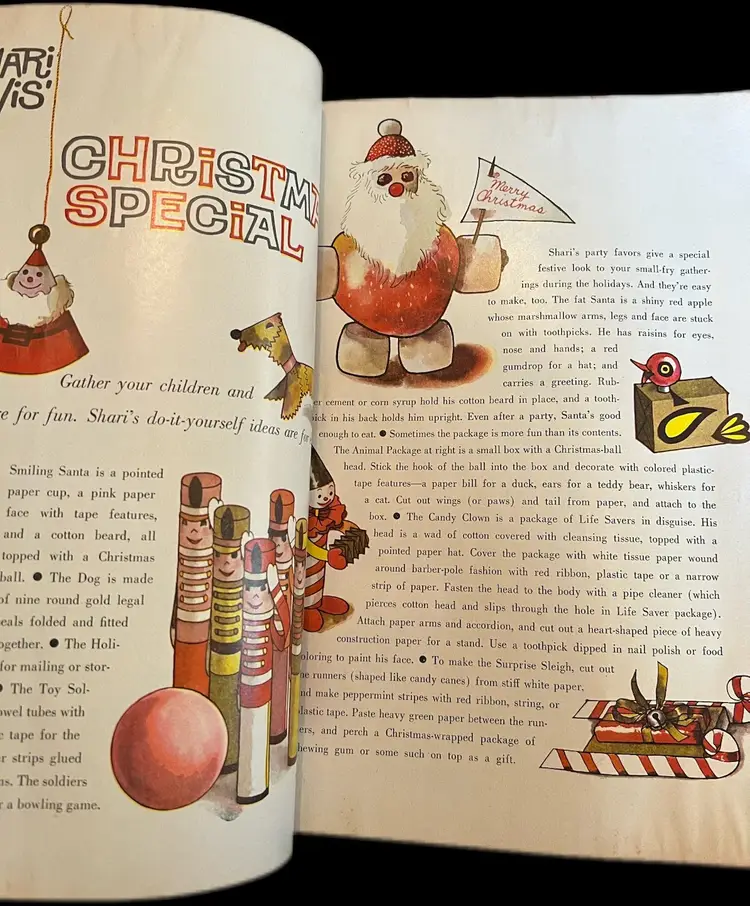 CHRISTMA
SPECIAL
Gather your children and
for fun. Shari's do-it-yourself ideas are
Smiling Santa is a pointed
paper cup, a pink paper
face with tape features,
and a cotton beard, all
topped with a Christmas
ball. ● The Dog is made
of nine round gold legal
eals folded and fitted
ogether. ● The Holi-
for mailing or stor-
● The Toy Sol-
owel tubes with
tape for the
strips glued
The soldiers
a bowling game.
Merry
Christmas
Shari's party favors give a special
festive look to your small-fry gather-
ings during the holidays. And they're easy
to make, too. The fat Santa is a shiny red apple
whose marshmallow arms, legs and face are stuck
on with toothpicks. He has raisins for eyes,
nose and hands; a red
gumdrop for a hat; and
carries a greeting. Rub-
er cement or corn syrup hold his cotton beard in place, and a tooth-
ick in his back holds him upright. Even after a party, Santa's good
enough to eat. ● Sometimes the package is more fun than its contents.
The Animal Package at right is a small box with a Christmas-ball
head. Stick the hook of the ball into the box and decorate with colored plastic-
tape features—a paper bill for a duck, ears for a teddy bear, whiskers for
a cat. Cut out wings (or paws) and tail from paper, and attach to the
box. ● The Candy Clown is a package of Life Savers in disguise. His
head is a wad of cotton covered with cleansing tissue, topped with a
pointed paper hat. Cover the package with white tissue paper wound
around barber-pole fashion with red ribbon, plastic tape or a narrow
strip of paper. Fasten the head to the body with a pipe cleaner (which
pierces cotton head and slips through the hole in Life Saver package).
Attach paper arms and accordion, and cut out a heart-shaped piece of heavy
construction paper for a stand. Use a toothpick dipped in nail polish or food
oloring to paint his face. ● To make the Surprise Sleigh, cut out
runners (shaped like candy canes) from stiff white paper,
nd make peppermint stripes with red ribbon, string, or
lastic tape. Paste heavy green paper between the run-
ers, and perch a Christmas-wrapped package of
hewing gum or some such on top as a gift.